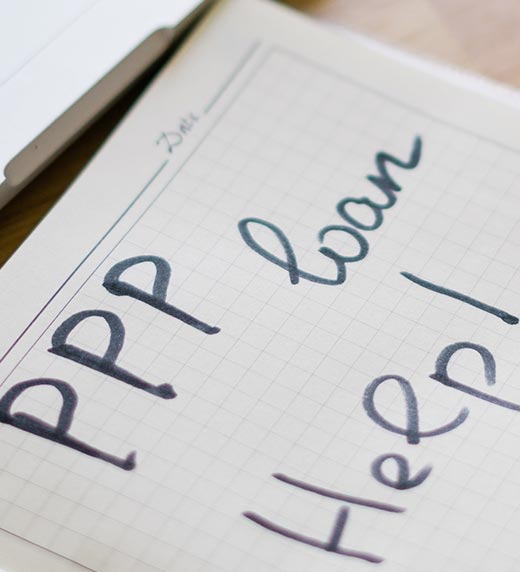 Date
PPP loan
Help!